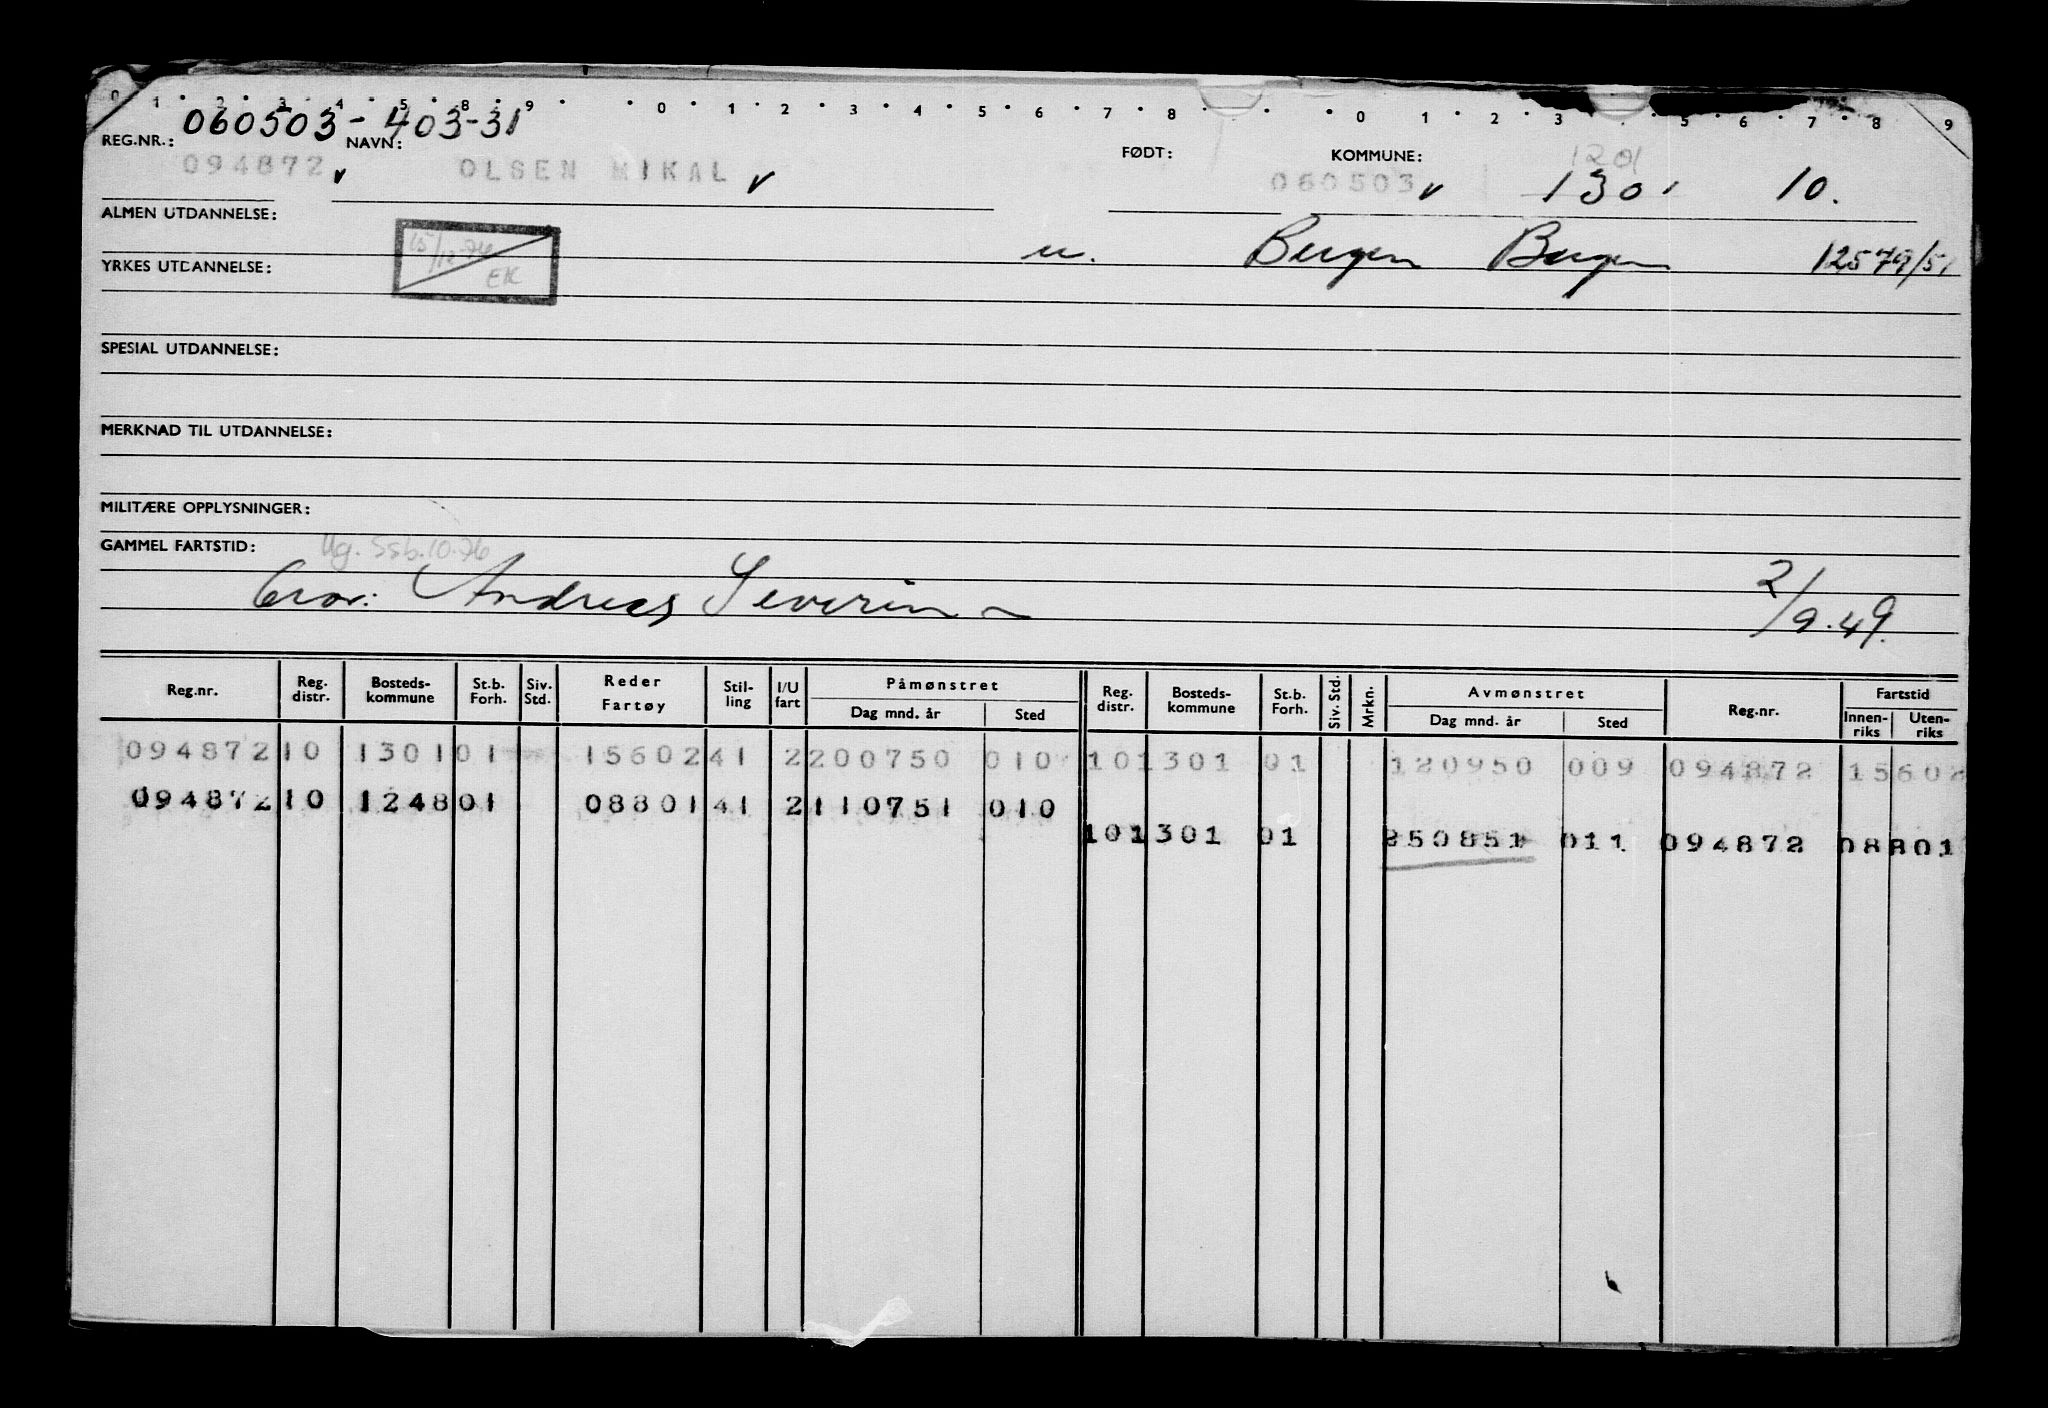 0 1 2 3 4 5 8 9 0 1 2 3 4 5 6 7 8 0 1 2 3 5 6 7 8 9
060503-403-31
REG.NR.: NAVN: FØDT: KOMMUNE: 1201
094872 v OLSEN MIKAL v 060503 v 1301 10.
ALMEN UTDANNELSE:
15/12-76 u. Bergen Bergen 12579/51
YRKES UTDANNELSE: EK
SPESIAL UTDANNELSE:
MERKNAD TIL UTDANNELSE:
MILITÆRE OPPLYSNINGER:
GAMMEL FARTSTID: Ug. Ssb. 10-76
Andreas Severin 2/9.49.
Reg.nr. Reg. distr. Bosteds-kommune St.b. Forh. Siv. Std. Reder Fartøy Stil-ling I/U fart Påmønstret Dag mnd. år Sted Reg. distr. Bosteds-kommune St.b. Forh. Siv. Std. Mrkn. Avmønstret Dag mnd. år Sted Reg.nr. Fartstid Innen-riks Uten-riks
094872 10 1301 01 15602 41 2 200750 010 10 1301 01 120950 009 094872 15602
094872 10 1248 01 08801 41 2 110751 010
10 1301 01 250851 011 094872 08801